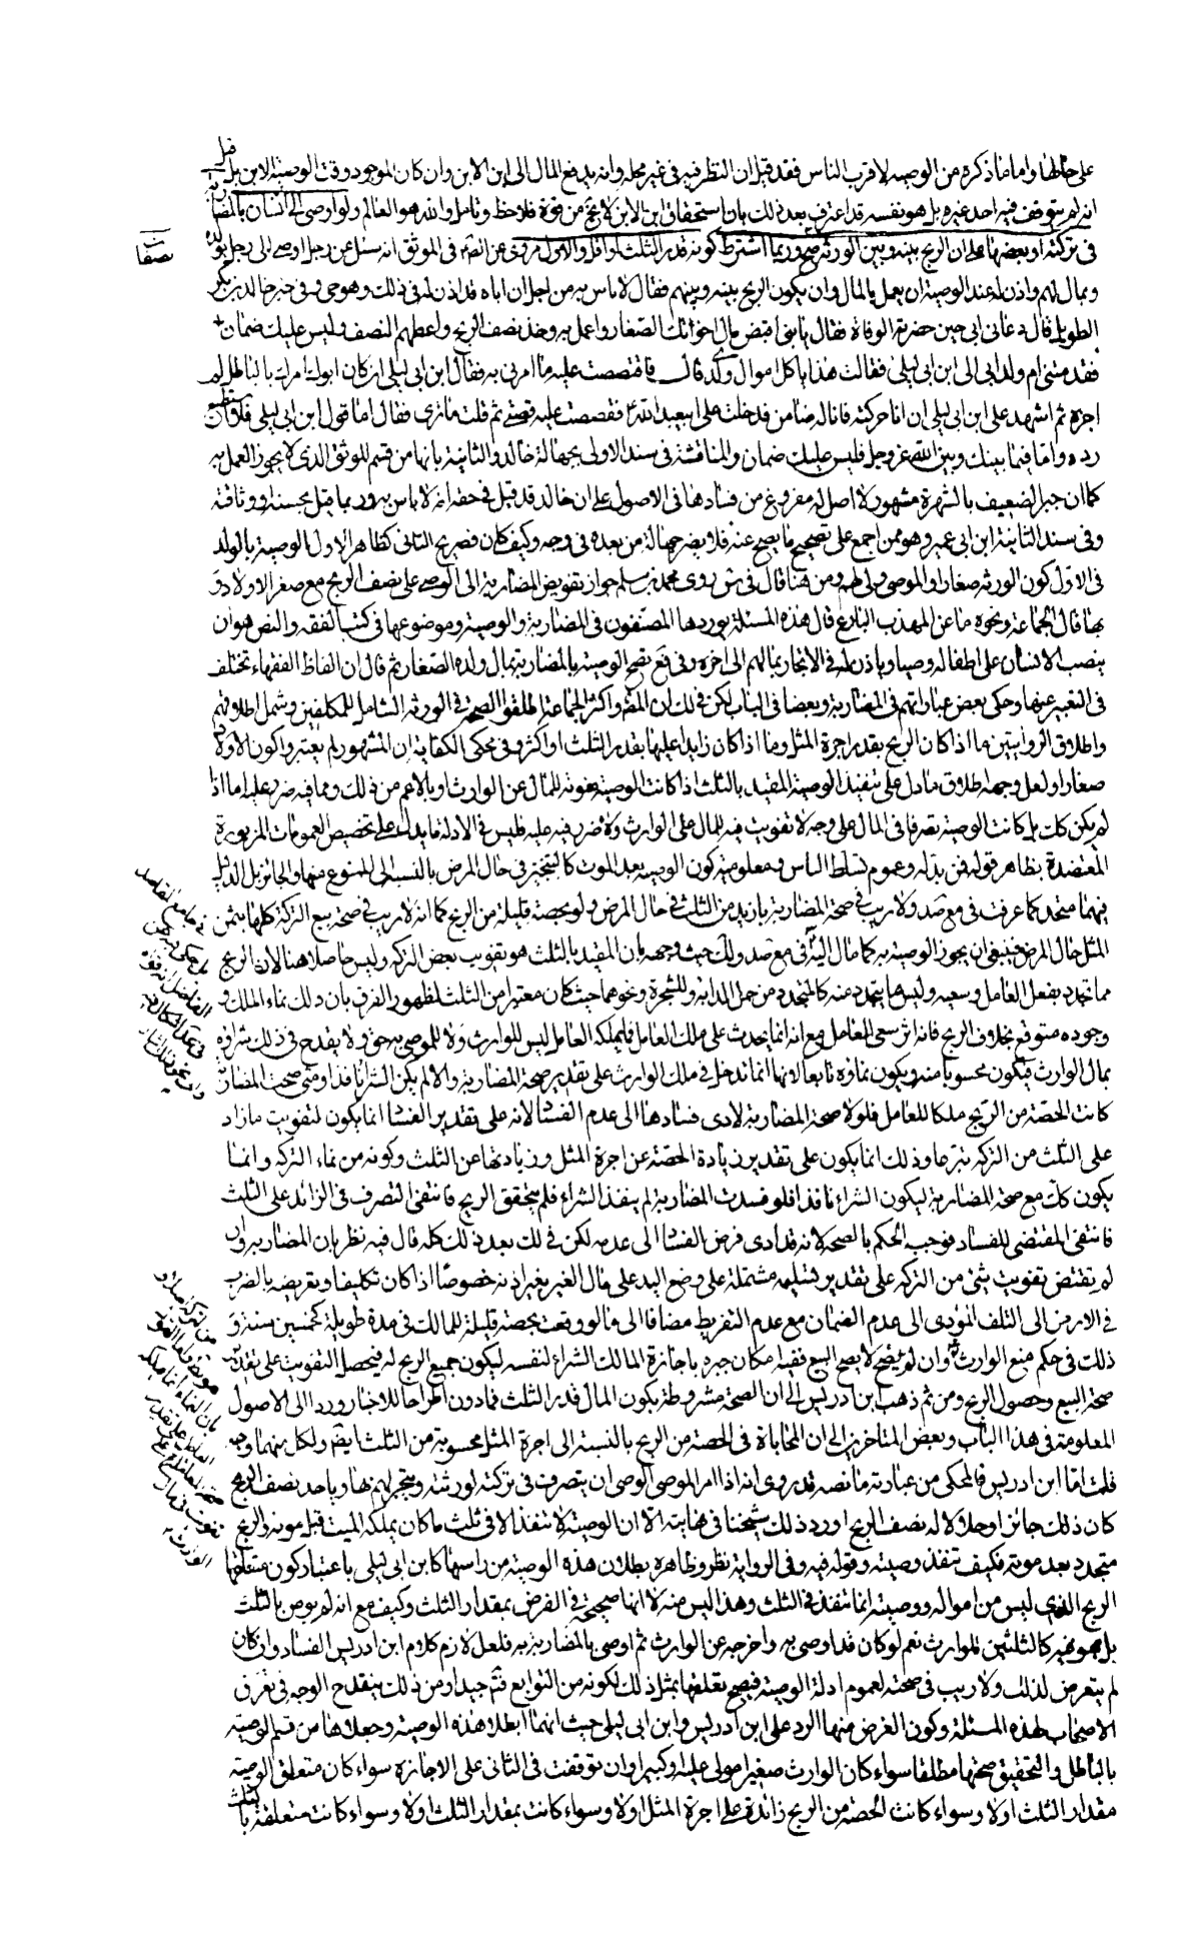 على حالها واما ما ذكره من الوصية لاقرب الناس فقد قيل ان النظر فيه في غير محله وانه يدفع المال الى ابن الابن وان كان الموجود وقت الوصية الابن بل قيل
انه لم يتوقف فيه احد غيره بل هو نفسه قد اعترف بعد ذلك بان استحقاق ابن الابن لا يخ من قوة فلاحظ وتامل والله هو العالم ولو اوصى الى انسان بالمضاربة
في تركته او بعضها على ان الربح بينه وبين الورثة صح وربما اشترط كونه قدر الثلث او اقل والاول مروى عن ائمتنا ففي الموثق انه سئل عن رجل اوصى الى رجل بولده
وبمال لهم واذن له عند الوصية ان يعمل بالمال وان يكون الربح بينه وبينهم فقال لا باس به من اجل ان اباه قد اذن له في ذلك وهو حي وفي خبر خالد بن بكر
الطويل قال دعاني ابي حين حضرته الوفاة فقال يا بنى اقبض مال اخوانك الصغار واعمل به وخذ نصف الربح واعطهم النصف وليس عليك ضمان
فقدمتني ام ولد ابي الى ابن ابي ليلى فقالت هذا ياكل اموال ولدي قال فاقتصصت عليه ما امرني به فقال ابن ابي ليلى ان كان ابوك امرك بالباطل لم
اجزه ثم اشهد على ابن ابي ليلى ان انا حركته فانا له ضامن فدخلت على ابيعبد الله ع فقصصت عليه قصتي ثم قلت ما ترى فقال اما قول ابن ابي ليلى فلا استطيع
رده واما فيما بينك وبين الله عز وجل فليس عليك ضمان والمناقشة في سند الاولى بجهالة خالد والثانية بانها من قسم الموثق الذى لا يجوز العمل به
كما ان جبر الضعيف بالشهرة مشهور لا اصل له مفروغ من فسادها في الاصول على ان خالد قد قيل في حقه انه لا باس به وربما قيل بحسنه او وثاقته
وفي سند الثانية ابن ابي عمير وهو ممن اجمع على تصحيح ما يصح عنه فلا يضر جهالة من بعده في وجه وكيف كان فصريح الثاني كظاهر الاول الوصية بالولد
في الاول كون الورثة صغارا والموصى ولى لهم ومن هنا قال في روى محمد بن مسلم جواز تفويض المضاربة الى الوصى على نصف الربح مع صغر الاولاد
بها قال الجماعة ونحوه ما عن المهذب البارع قال هذه المسئلة يوردها المصنفون في المضاربة والوصية وموضوعها في كتب الفقه والنص هو ان
ينصب الانسان على اطفاله وصيا وياذن له في الاتجار بمالهم الى اخره وفي تصح الوصية بالمضاربة بمال ولده الصغار ثم قال ان الفاظ الفقهاء تختلف
في التعبير عنها وحكى بعض عباراتهم في المضاربة وبعضا في الباب لكن في لك ان المصنف واكثر الجماعة اطلقوا الصحة في الورثة الشامل للمكلفين وشمل اطلاقهم
واطلاق الروايتين ما اذا كان الربح بقدر اجرة المثل وما اذا كان زايدا عليها بقدر الثلث او اكثر وفي محكى الكفاية ان المشهور لم يعتبروا كون الاولاد
صغارا ولعل وجهه اطلاق ما دل على تنفيذ الوصية المقيد بالثلث اذا كانت الوصية مفوتة للمال عن الوارث او بالاعم من ذلك ومما فيه ضرر عليه اما اذا
لم يكن كك بل كانت الوصية تصرفا في المال على وجه لا تفويت فيه للمال على الوارث ولا ضرر فيه عليه فليس في الادلة ما يدل على تخصيص العمومات المزبورة
المعتضدة بظاهر قوله فمن بدله وعموم تسلط الناس ومعلومية كون الوصية بعد الموت كالتنجيز في حال المرض بالنسبة الى الممنوع منها والجائز بل الدليل
فيهما متحد كما عرفت في مع صد ولا ريب في صحة المضاربة بازيد من الثلث في حال المرض ولو بحصة قليلة من الربح كما انه لا ريب في صحة بيع التركة كلها بثمن
المثل حال المرض فينبغي ان يجوز الوصية به كما مال اليه في مع صد ولك حيث وجهه بان المقيد بالثلث هو تفويت بعض التركة وليس حاصلا هنا لان الربح
مما تجدد بفعل العامل وسعيه وليس مما يتجدد منه كالمتجدد من حمل الدابة والشجرة ونحوهما حيث كان معتبرا من الثلث لظهور الفرق بان ذلك نماء الملك و
وجوده متوقع بخلاف الربح فانه اثر سعى العامل مع انه انما يحدث على ملك العامل فما يملكه العامل ليس للوارث ولا للموصى به حق ولا يقدح في ذلك شراؤه
بمال الوارث فيكون محسوبا منه ويكون نماؤه تابعا لانها انما تدخل في ملك الوارث على تقدير صحة المضاربة والا لم يكن الشراء نافذا ومتى صحت المضاربة
كانت الحصة من الربح ملكا للعامل فلولا صحة المضاربة لادى فسادها الى عدم الفساد لانه على تقدير الفساد انما يكون لتفويت ما زاد
على الثلث من التركة تبرعا وذلك انما يكون على تقدير زيادة الحصة عن اجرة المثل وزيادتها عن الثلث وكونه من نماء التركة وانما
يكون كك مع صحة المضاربة ليكون الشراء نافذا فلو فسدت المضاربة لم ينفذ الشراء فلم يتحقق الربح فانتفى التصرف في الزائد على الثلث
فانتفى المقتضى للفساد فوجب الحكم بالصحة لانه قد ادى فرض الفساد الى عدمه لكن في لك بعد ذلك كله قال فيه نظر بان المضاربة وان
لم يقتض تفويت شئ من التركة على تقدير تسليمه مشتملة على وضع اليد على مال الغير بغير اذنه خصوصا اذا كان تكليفا وتعريضه بالضرب
في الارض الى التلف المؤدى الى عدم الضمان مع عدم التفريط مضافا الى ما لو وقعت بحصة قليلة للمالك في مدة طويلة كخمسين سنة و
ذلك في حكم منع الوارث وان لم يصح لا يصح البيع فقيه امكان جبره باجازة المالك الشراء لنفسه ليكون جميع الربح له فيحصل التفويت على تقدير
صحة البيع وحصول الربح ومن ثم ذهب ابن ادريس الى ان الصحة مشروطة بكون المال قدر الثلث فما دون اطراحا للاخبار وردا الى الاصول
المعلومة في هذا الباب وبعض المتاخرين الى ان المحاباة في الحصة من الربح بالنسبة الى اجرة المثل محسوبة من الثلث ايضا ولكل منهما وجه
قلت اما ابن ادريس فالمحكى من عبارته ما نصه قد روى انه اذا امر الموصى الوصى ان يتصرف في تركته لورثته ويتجر لهم بها وياخذ نصف الربح
كان ذلك جائزا وحلالا له نصف الربح اورد ذلك شيخنا في نهايته الا ان الوصية لا تنفذ الا في ثلث ما كان يملكه الميت قبل موته والربح
متجدد بعد موته فكيف تنفذ وصيته وقوله فيه وفي الرواية نظر وظاهره بطلان هذه الوصية من راسها كابن ابي ليلى باعتبار كون متعلقها
الربح الذى ليس من امواله ووصيته انما تنفذ في الثلث وهذا ليس منه لا انها صحيحة في الفرض بمقدار الثلث وكيف مع انه لم يوص بالثلث
بل هو فيه كالثلثين للوارث نعم لو كان قد اوصى به واخرجه عن الوارث ثم اوصى بالمضاربة به فلعل لازم كلام ابن ادريس الفساد وان كان
لم يتعرض لذلك ولا ريب في صحته لعموم ادلة الوصية فيصح تعلقها بمثل ذلك لكونه من التوابع فتم جيدا ومن ذلك ينقدح الوجه في تعرض
الاصحاب لهذه المسئلة وكون الغرض منها الرد على ابن ادريس وابن ابي ليلى حيث انهما ابطلا هذه الوصية وجعلاها من قسم الوصية
بالباطل والتحقيق صحتها مطلقا سواء كان الوارث صغيرا مولى عليه او كبيرا وان توقفت في الثاني على الاجازة سواء كان متعلق الوصية
مقدار الثلث اولا وسواء كانت الحصة من الربح زائدة على اجرة المثل اولا وسواء كانت بمقدار الثلث اولا وسواء كانت متعلقة بالثلث